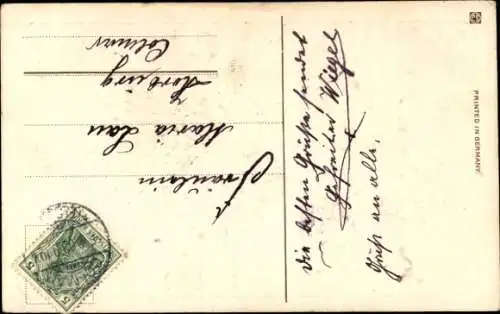 Fräulein
Maria Lau
Horburg
Colmar
Die besten Grüße sendet
Wiegel
Gruß an alle.
PRINTED IN GERMANY
5